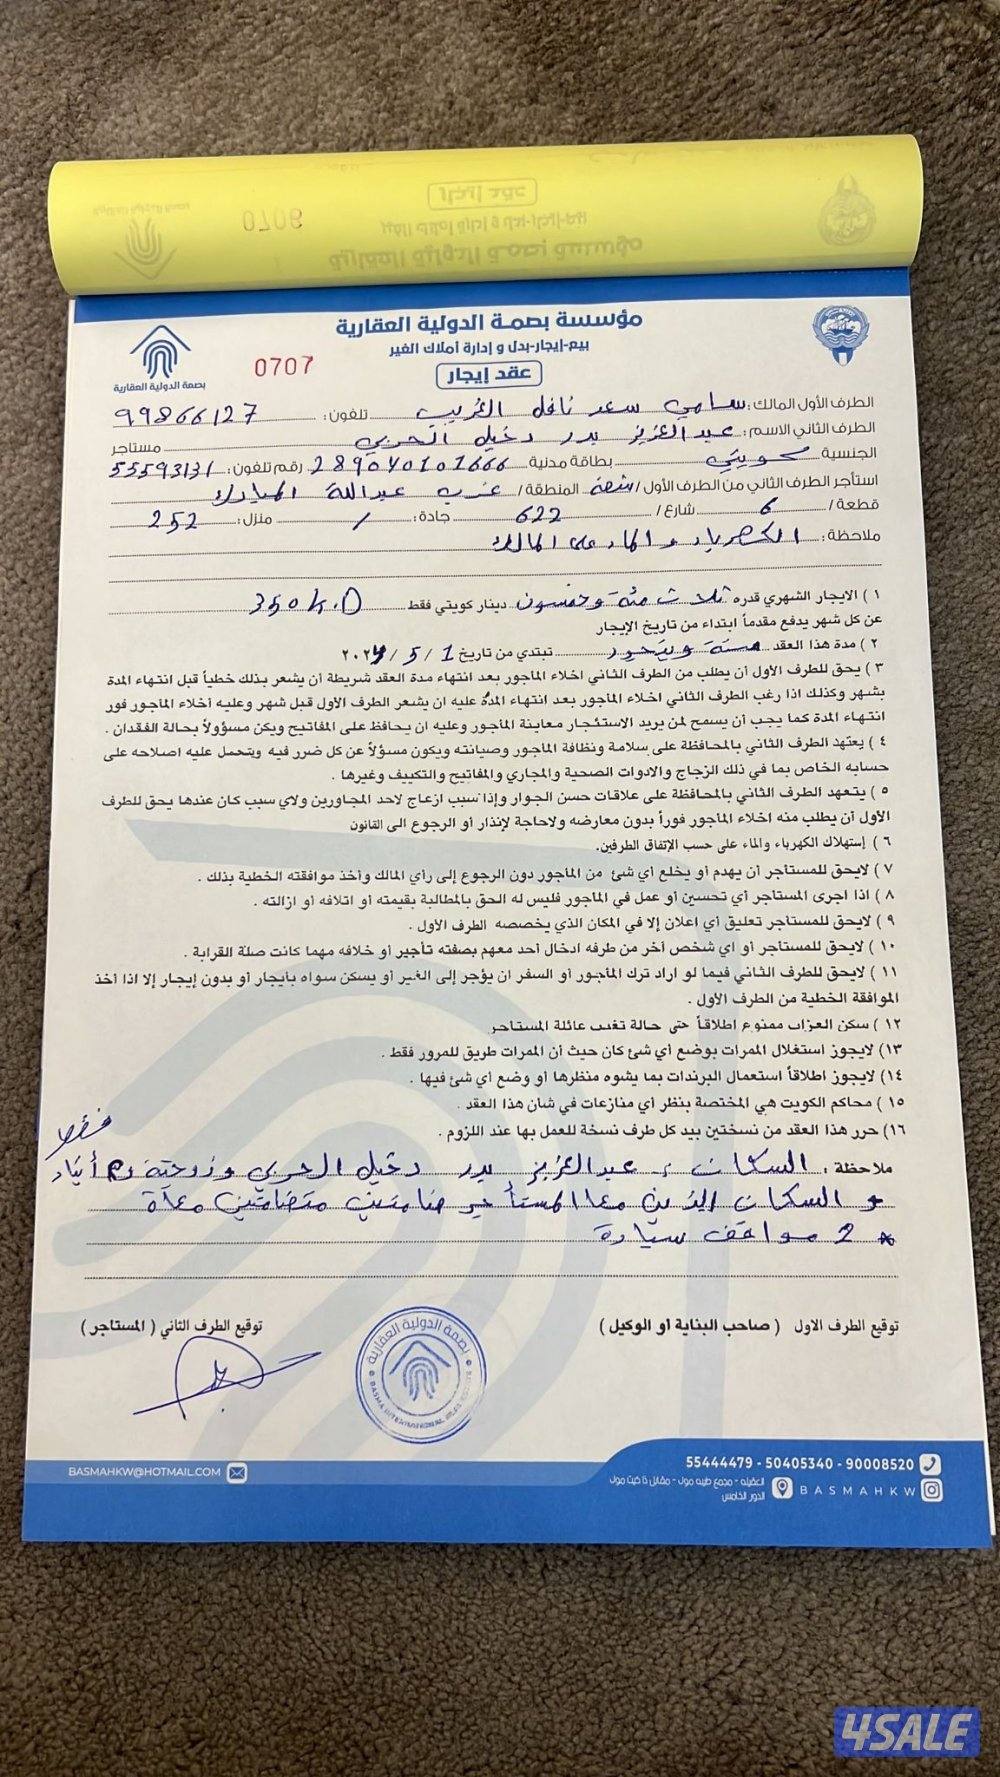 مؤسسة بصمة الدولية العقارية
بيع-إيجار-بدل و إدارة أملاك الغير
عقد إيجار
بصمة الدولية العقارية
0707
0706
الطرف الأول المالك: سامي سعد نافل الغريب تلفون: 99866127
الطرف الثاني الاسم: عبدالعزيز بدر دخيل الحربي مستاجر
الجنسية كويتي بطاقة مدنية 289040101666 رقم تلفون: 55593131
استأجر الطرف الثاني من الطرف الأول / شقة المنطقة / غرب عبدالله المبارك
قطعة / 6 شارع / 622 جادة: / منزل: 252
ملاحظة: الكهرباء و الماء على المالك
١ ) الايجار الشهري قدره ثلاث مئة وخمسون دينار كويتي فقط 350 K.D
عن كل شهر يدفع مقدماً ابتداء من تاريخ الإيجار
٢ ) مدة هذا العقد سنة ويتجدد تبتدي من تاريخ 1 / 5 / ٢٠٢
٣ ) يحق للطرف الأول أن يطلب من الطرف الثاني اخلاء المأجور بعد انتهاء مدة العقد شريطة أن يشعر بذلك خطياً قبل انتهاء المدة
بشهر وكذلك اذا رغب الطرف الثاني اخلاء المأجور بعد انتهاء المدة عليه ان يشعر الطرف الاول قبل شهر وعليه أخلاء المأجور فور
انتهاء المدة كما يجب أن يسمح لمن يريد الاستئجار معاينة المأجور وعليه ان يحافظ على المفاتيح ويكن مسؤولاً بحالة الفقدان .
٤ ) يعتهد الطرف الثاني بالمحافظة على سلامة ونظافة المأجور وصيانته ويكون مسؤلاً عن كل ضرر فيه ويتحمل عليه اصلاحه على
حسابه الخاص بما في ذلك الزجاج والادوات الصحية والمجاري والمفاتيح والتكييف وغيرها .
٥ ) يتعهد الطرف الثاني بالمحافظة على علاقات حسن الجوار وإذا سبب ازعاج لاحد المجاورين ولاي سبب كان عندها يحق للطرف
الأول أن يطلب منه اخلاء المأجور فوراً بدون معارضه ولاحاجة لإنذار أو الرجوع الى القانون
٦ ) إستهلاك الكهرباء والماء على حسب الإتفاق الطرفين.
٧ ) لايحق للمستأجر أن يهدم أو يخلع أي شئ من المأجور دون الرجوع إلى رأي المالك وأخذ موافقته الخطية بذلك .
٨ ) اذا اجرى المستأجر أي تحسين أو عمل في المأجور فليس له الحق بالمطالبة بقيمته او اتلافه أو ازالته .
٩ ) لايحق للمستأجر تعليق أي اعلان إلا في المكان الذي يخصصه الطرف الأول .
١٠ ) لايحق للمستأجر أو اي شخص أخر من طرفه ادخال أحد معهم بصفته تأجير أو خلافه مهما كانت صلة القرابة .
١١ ) لايحق للطرف الثاني فيما لو اراد ترك المأجور أو السفر ان يؤجر إلى الغير او يسكن سواه بأيجار أو بدون إيجار إلا اذا أخذ
الموافقة الخطية من الطرف الأول .
١٢ ) سكن العزاب ممنوع اطلاقاً حتى حالة تغيب عائلة المستاجر
١٣) لايجوز استغلال الممرات بوضع أي شئ كان حيث أن الممرات طريق للمرور فقط .
١٤) لايجوز اطلاقاً استعمال البرندات بما يشوه منظرها أو وضع أي شئ فيها .
١٥ ) محاكم الكويت هي المختصة بنظر أي منازعات في شان هذا العقد .
١٦) حرر هذا العقد من نسختين بيد كل طرف نسخة للعمل بها عند اللزوم .
ملاحظة : السكان : عبدالعزيز بدر دخيل الحربي وزوجته و أبناء فقط
و السكان الذين مع المستأجر ضامنين متضامنين معاه
* 2 مواقف سيارة
توقيع الطرف الاول ( صاحب البناية او الوكيل )
توقيع الطرف الثاني ( المستاجر )
بصمة الدولية العقارية
55444479 - 50405340 - 90008520
BASMAHKW
العقيله - مجمع طيبه مول - مقابل ذا كيت مول
الدور الخامس
BASMAHKW@HOTMAIL.COM
4SALE